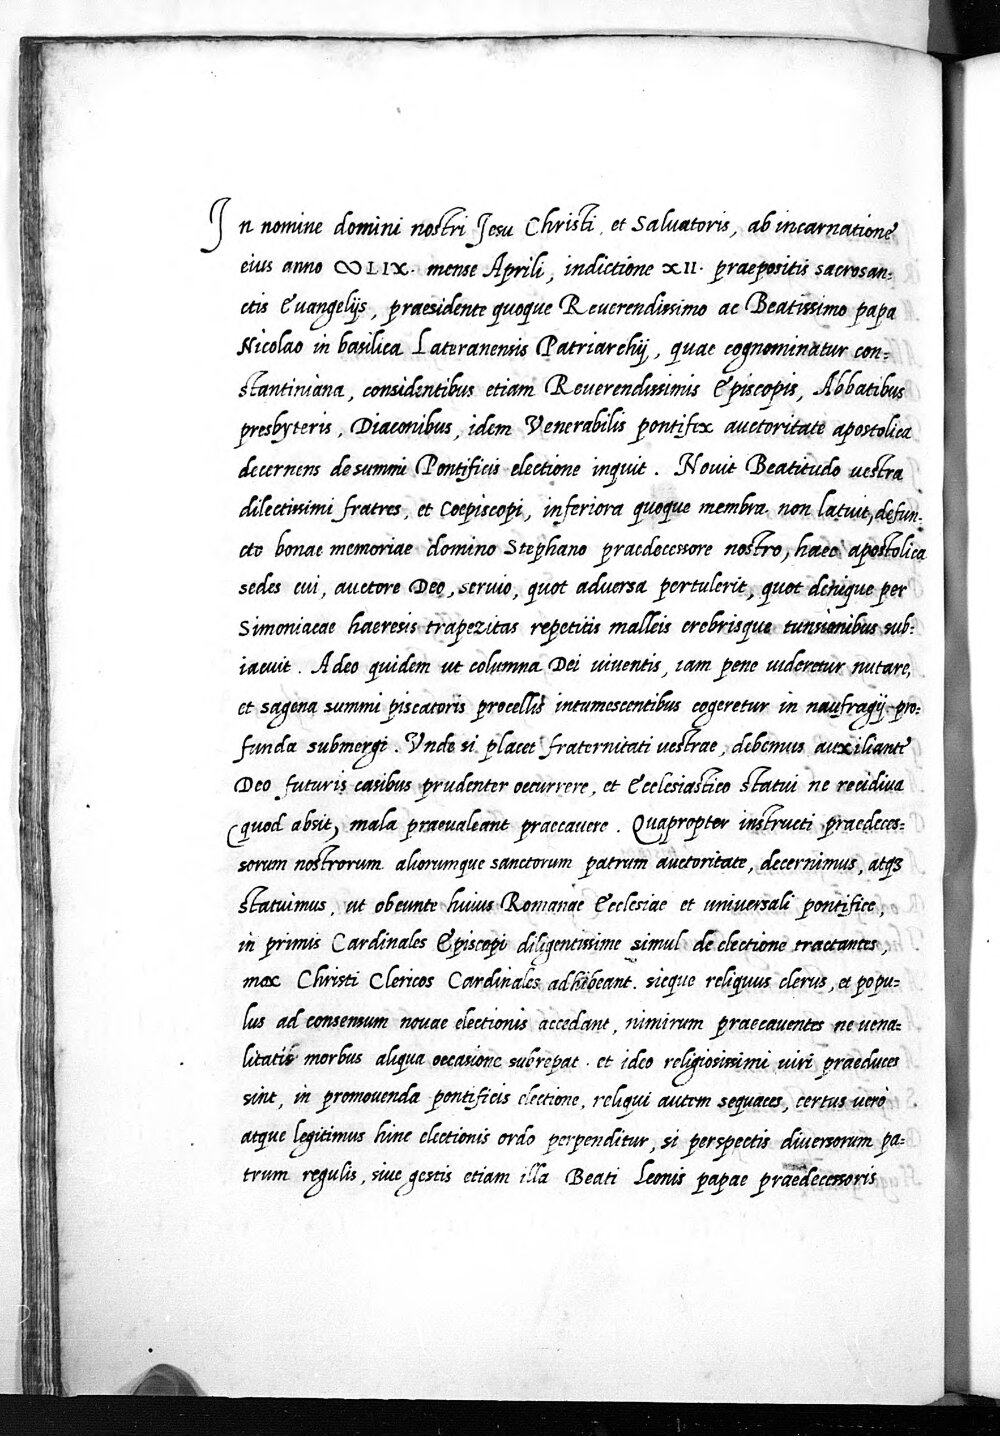 In nomine domini nostri Jesu Christi, et Salvatoris, ab incarnatione
eius anno ∞LIX. mense Aprili, indictione XII. praepositis sacrosan=
ctis Evangelijs, praesidente quoque Reverendissimo ac Beatissimo papa
Nicolao in basilica Lateranensis Patriarchij, quae cognominatur con=
stantiniana, considentibus etiam Reverendissimis Episcopis, Abbatibus
presbyteris, Diaconibus, idem Venerabilis pontifex auctoritate apostolica
decernens de summi Pontificis electione inquit. Novit Beatitudo vestra
dilectissimi fratres, et Coepiscopi, inferiora quoque membra non latuit, defun=
cto bonae memoriae domino Stephano praedecessore nostro, haec apostolica
sedes cui, auctore Deo, servio, quot adversa pertulerit, quot denique per
Simoniacae haeresis trapezitas repetitis malleis crebrisque tunsionibus sub=
iacuit. Adeo quidem ut columna Dei viventis, iam pene videretur nutare,
et sagena summi piscatoris procellis intumescentibus cogeretur in naufragij pro=
funda submergi. Unde si placet fraternitati vestrae, debemus auxiliante
Deo futuris casibus prudenter occurrere, et Ecclesiastico statui ne recidiva
(quod absit) mala praevaleant praecavere. Quapropter instructi praedeces=
sorum nostrorum aliorumque sanctorum patrum auctoritate, decernimus, atq3
statuimus, ut obeunte huius Romanae Ecclesiae et universali pontifice,
in primis Cardinales Episcopi diligentissime simul de electione tractantes,
mox Christi Clericos Cardinales adhibeant. sicque reliquus clerus, et popu=
lus ad consensum novae electionis accedant, nimirum praecaventes ne vena=
litatis morbus aliqua occasione subrepat. et ideo religiosissimi viri praeduces
sint, in promovenda pontificis electione, reliqui autem sequaces, certus vero
atque legitimus hinc electionis ordo perpenditur, si perspectis diversorum pa=
trum regulis, sive gestis etiam illa Beati Leonis papae praedecessoris